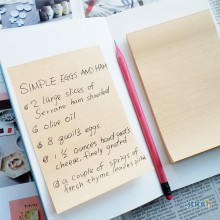 SIMPLE EGGS AND HAM
2 large slices of
Serrano ham shredded
olive oil
8 quail's eggs
1 ½ ounces hard goat's
cheese, finely grated
a couple of sprigs of
fresh thyme